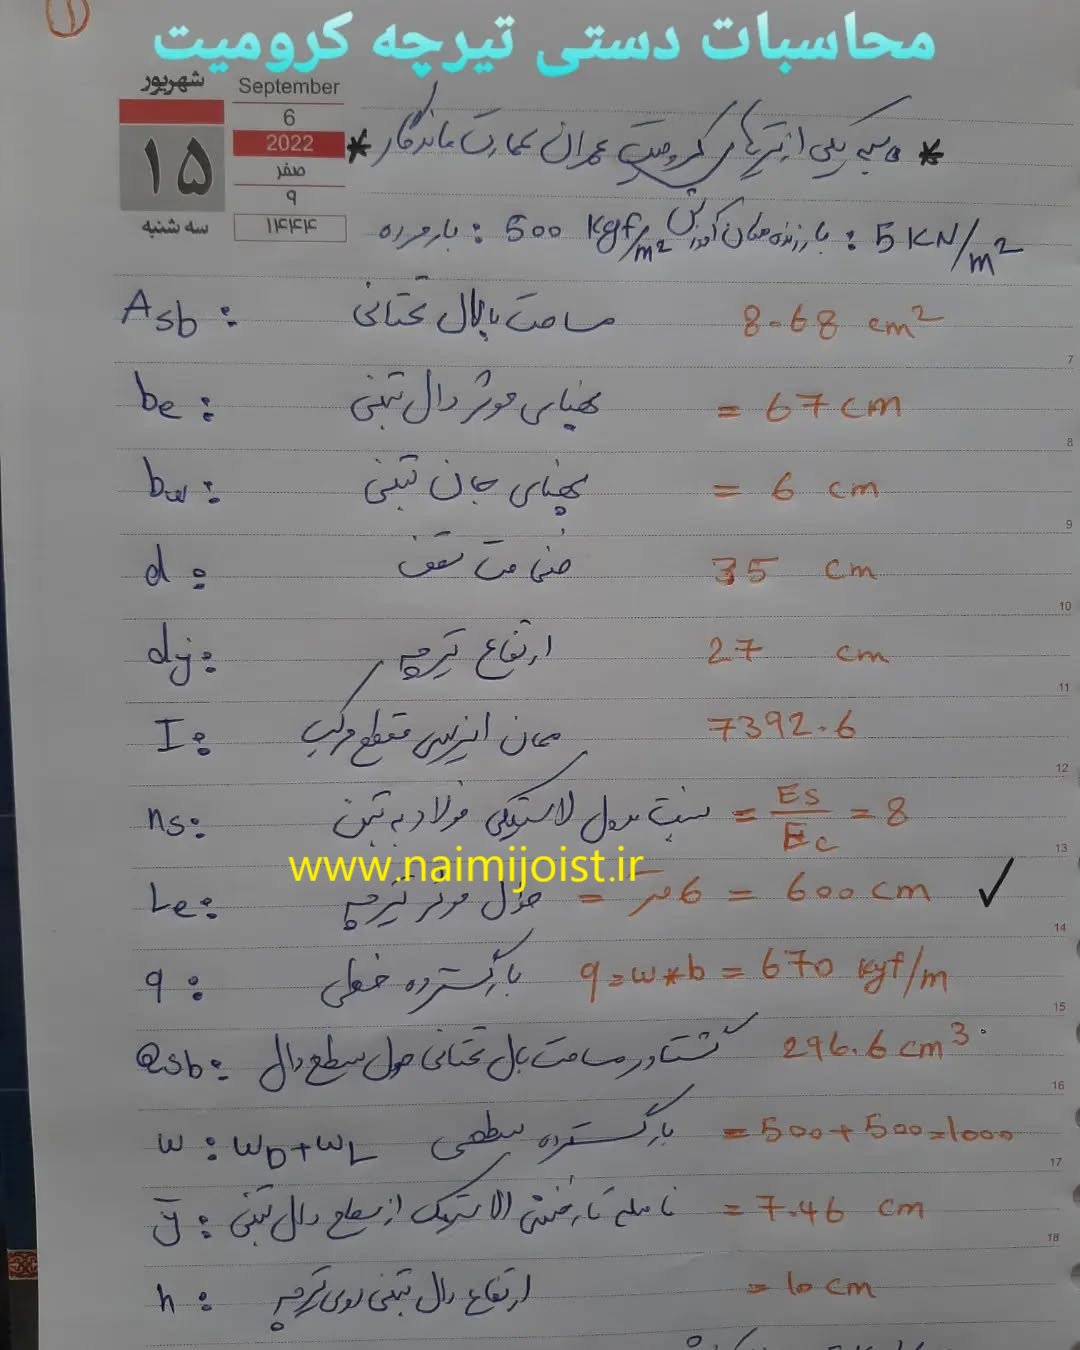 محاسبات دستی تیرچه کرومیت
شهریور
۱۵
سه شنبه
September
6
2022
صفر
۹
۱۴۴۴
* محاسبه یکی از تیرهای کرومیت عمران عمارت ماندگار *
بار مرده : 500 kgf/m² بار زنده سالن آموزش : 5 KN/m²
Asb : مساحت بال تحتانی 8.68 cm²
7
be : پهنای موثر دال بتنی = 67 cm
8
bw : پهنای جان بتنی = 6 cm
9
d : ضخامت سقف 35 cm
10
dj : ارتفاع تیرچه 27 cm
11
I : ممان اینرسی مقطع مرکب 7392.6
12
ns : نسبت مدول الاستیکی فولاد به بتن = Es/Ec = 8
13
www.naimijoist.ir
Le : طول موثر تیرچه = 6 متر = 600 cm ✓
14
q : بار گسترده خطی q = w*b = 670 kgf/m
15
Qsb : گشتاور مساحت بال تحتانی حول سطح دال 296.6 cm³
16
w : wD+wL بار گسترده سطحی = 500+500=1000
17
ȳ : فاصله تار خنثی الاستیک از سطح دال بتنی = 7.46 cm
18
h : ارتفاع دال بتنی روی تیرچه = 10 cm